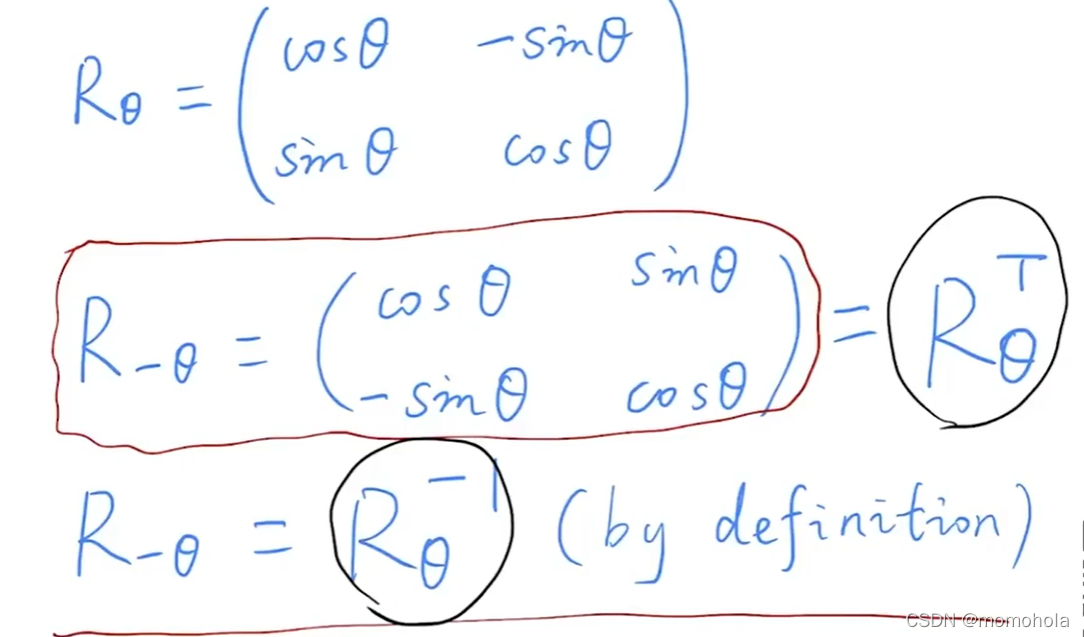 R_θ = ( cosθ -sinθ
sinθ cosθ )
R_{-θ} = ( cosθ sinθ
-sinθ cosθ ) = R_θ^T
R_{-θ} = R_θ^{-1} (by definition)
CSDN @momohola